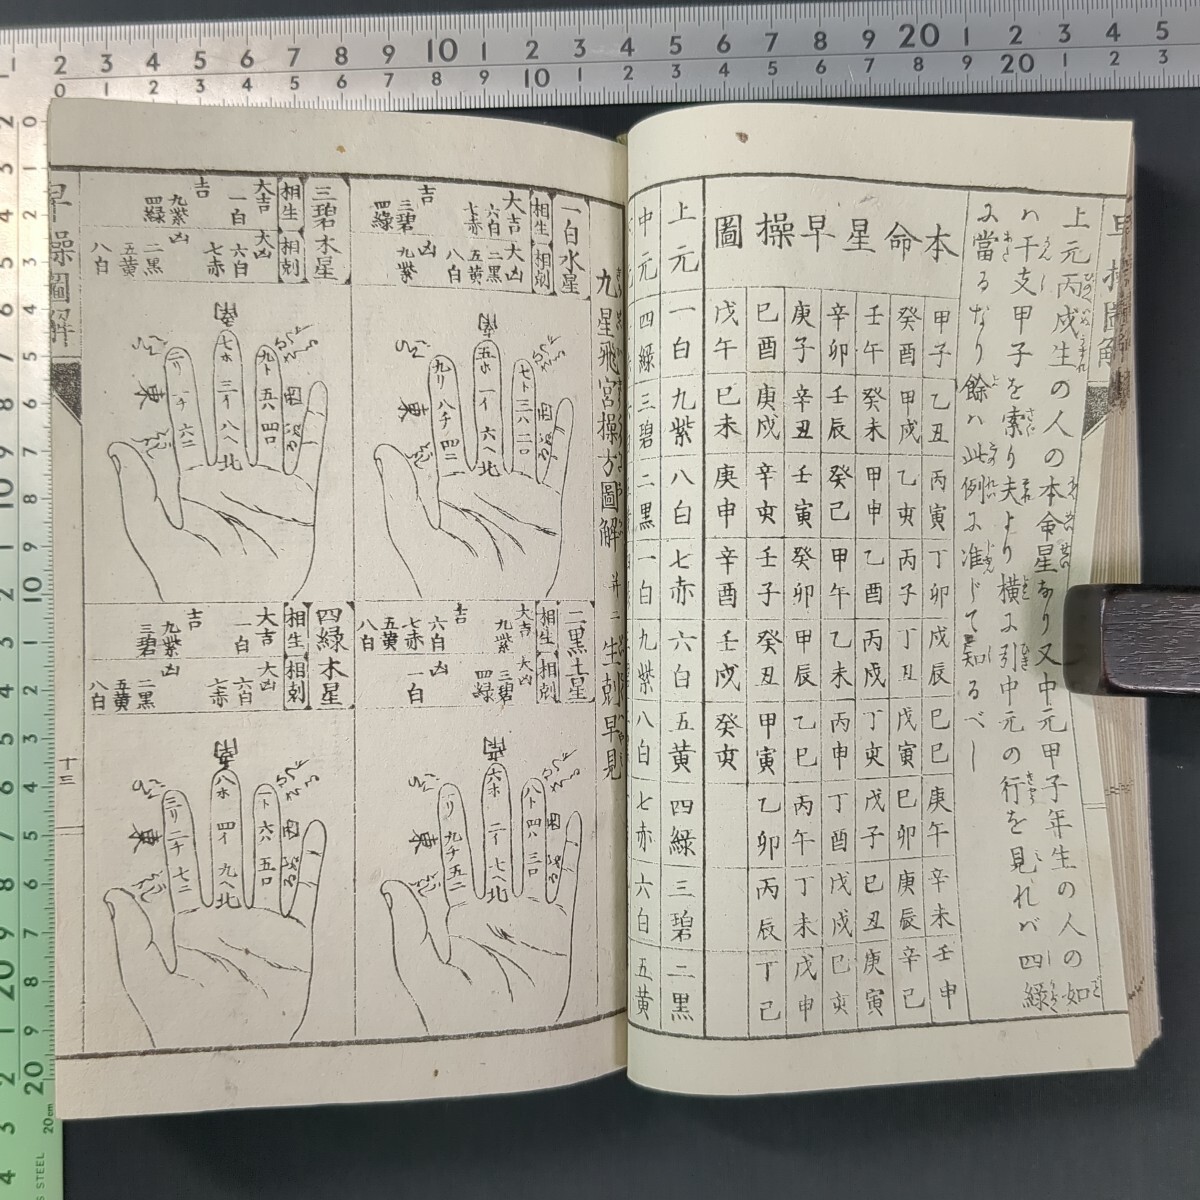 早操圖解
上元丙戌生の人の本命星なり又中元甲子年生の人の如
ハ干支甲子を索り夫より横に引中元の行を見れバ四緑
に當るなり餘ハ此例に准じて知るべし
本命星早操圖
甲子 乙丑 丙寅 丁卯 戊辰 己巳 庚午 辛未 壬申
癸酉 甲戌 乙亥 丙子 丁丑 戊寅 己卯 庚辰 辛巳
壬午 癸未 甲申 乙酉 丙戌 丁亥 戊子 己丑 庚寅
辛卯 壬辰 癸巳 甲午 乙未 丙申 丁酉 戊戌 己亥
庚子 辛丑 壬寅 癸卯 甲辰 乙巳 丙午 丁未 戊申
己酉 庚戌 辛亥 壬子 癸丑 甲寅 乙卯 丙辰 丁巳
戊午 己未 庚申 辛酉 壬戌 癸亥
上元 一白 九紫 八白 七赤 六白 五黄 四緑 三碧 二黒
中元 四緑 三碧 二黒 一白 九紫 八白 七赤 六白 五黄
九星飛宮操方圖解 并ニ生剋早見
一白水星
相生 大吉 六白 七赤 吉 三碧 四緑
相剋 大凶 二黒 五黄 八白 凶 九紫
南 東 北
五ホ 一イ 六ヘ
九リ 八チ 四ニ
七ト 三ハ 二ロ
二黒土星
相生 大吉 九紫 吉 六白 七赤 五黄 八白
相剋 大凶 三碧 四緑 凶 一白
南 東 北
六ホ 二イ 七ヘ
一リ 九チ 五ニ
八ト 四ハ 三ロ
三碧木星
相生 大吉 一白 吉 九紫 四緑
相剋 大凶 六白 七赤 凶 二黒 五黄 八白
南 東 北
七ホ 三イ 八ヘ
二リ 一チ 六ニ
九ト 五ハ 四ロ
四緑木星
相生 大吉 一白 吉 九紫 三碧
相剋 大凶 六白 七赤 凶 二黒 五黄 八白
南 東 北
八ホ 四イ 九ヘ
三リ 二チ 七ニ
一ト 六ハ 五ロ
早操圖解
十三